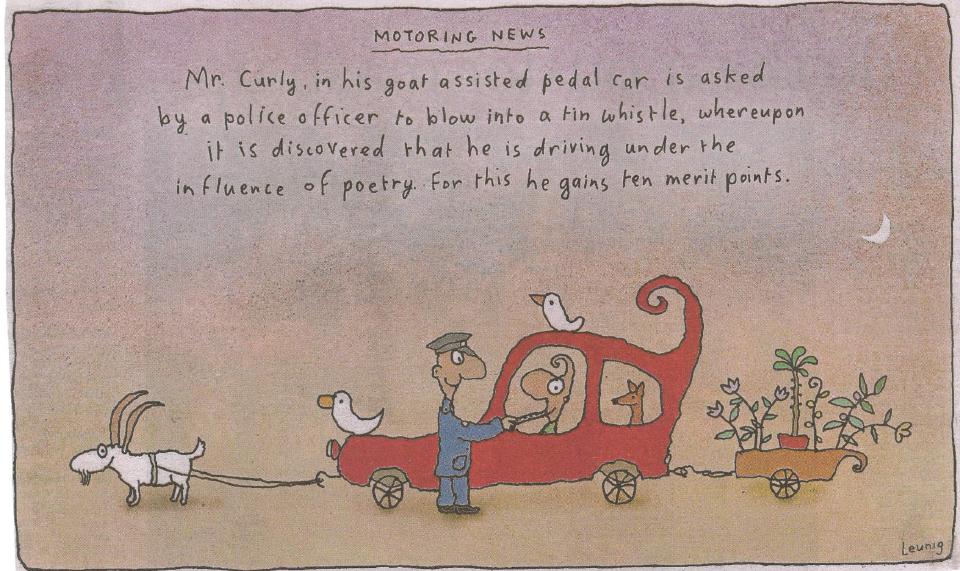 MOTORING NEWS
Mr. Curly, in his goat assisted pedal car is asked
by a police officer to blow into a tin whistle, whereupon
it is discovered that he is driving under the
influence of poetry. For this he gains ten merit points.
Leunig